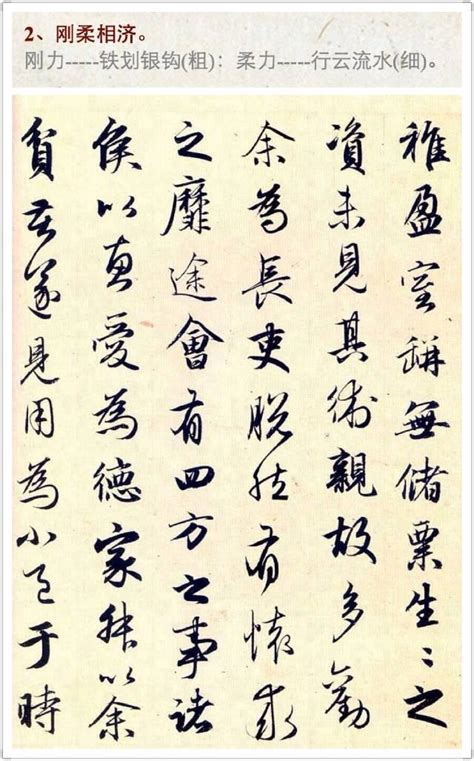 2、刚柔相济。
刚力-----铁划银钩(粗)：柔力-----行云流水(细)。
稚盈室缾無儲粟生〻之
資未見其術親故多勸
余為長吏脱然有懷求
之靡途會有四方之事諸
侯以惠愛為德家叔以余
貧苦遂見用為小邑于時